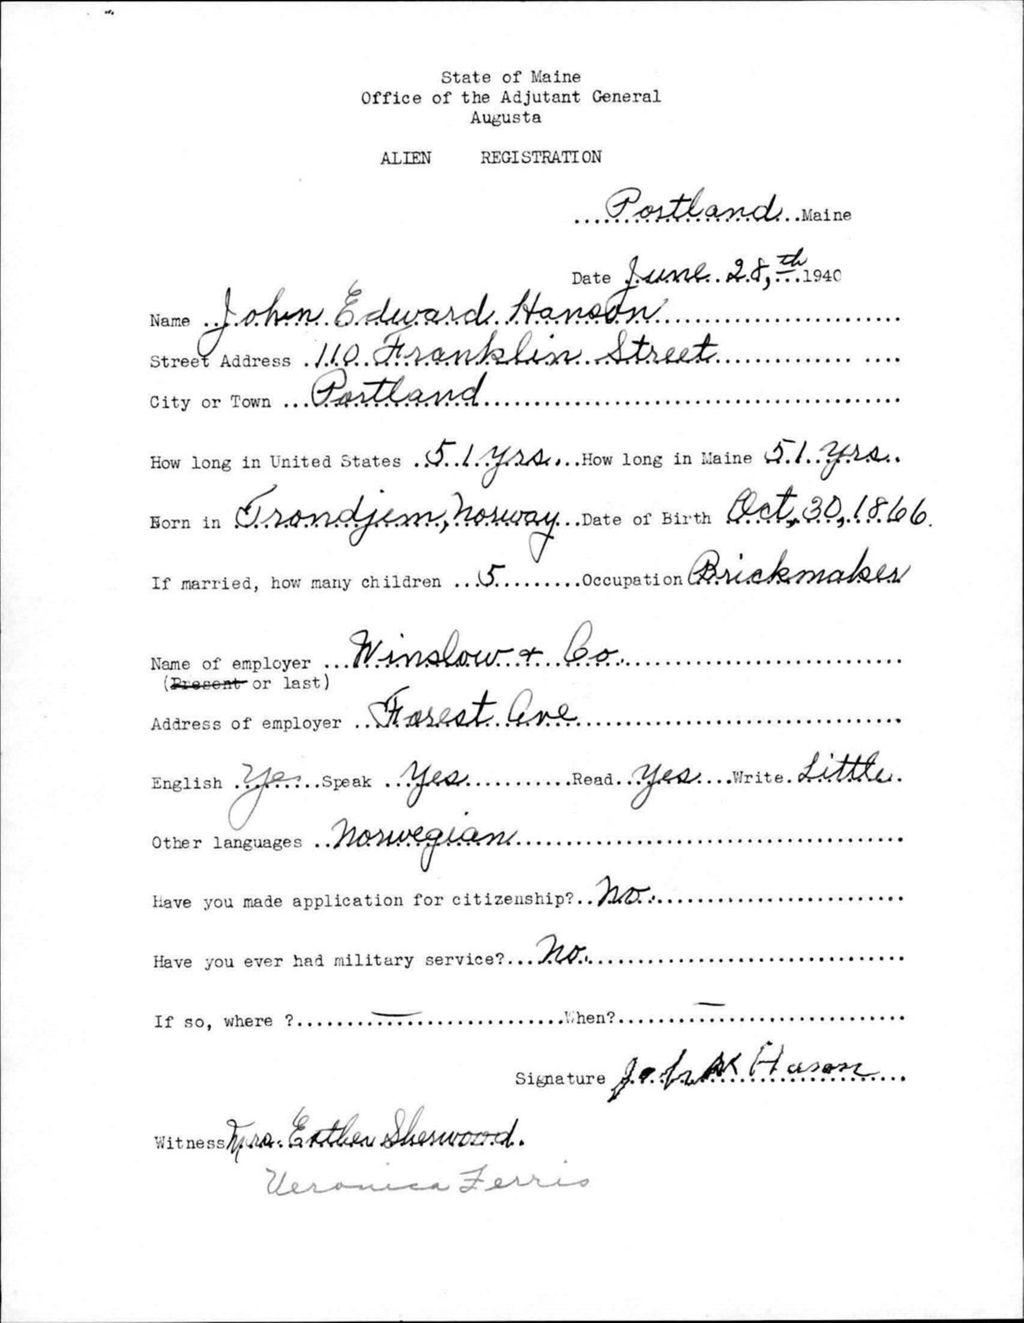 State of Maine
Office of the Adjutant General
Augusta
ALIEN REGISTRATION
Portland Maine
Date June 28, th 1940
Name John Edward Hanson
Street Address 110 Franklin Street
City or Town Portland
How long in United States 51 yrs. How long in Maine 51 yrs.
Born in Trondjem, Norway Date of Birth Oct, 30, 1866.
If married, how many children 5 Occupation Brickmaker
Name of employer Winslow + Co.
(Present or last)
Address of employer Forest Ave
English Yes Speak Yes Read Yes Write Little
Other languages Norwegian
Have you made application for citizenship? No.
Have you ever had military service? No.
If so, where ? — When? —
Signature Hason
Witness Mrs. Esther Sherwood.
Veronica Ferris